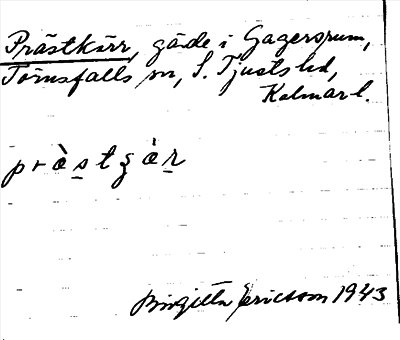 Prästkärr, gärde i Gagersrum,
Törnsfalls sn, S. Tjusts hd,
Kalmar l.
pràstʒàr
Birgitta Ericsson 1943